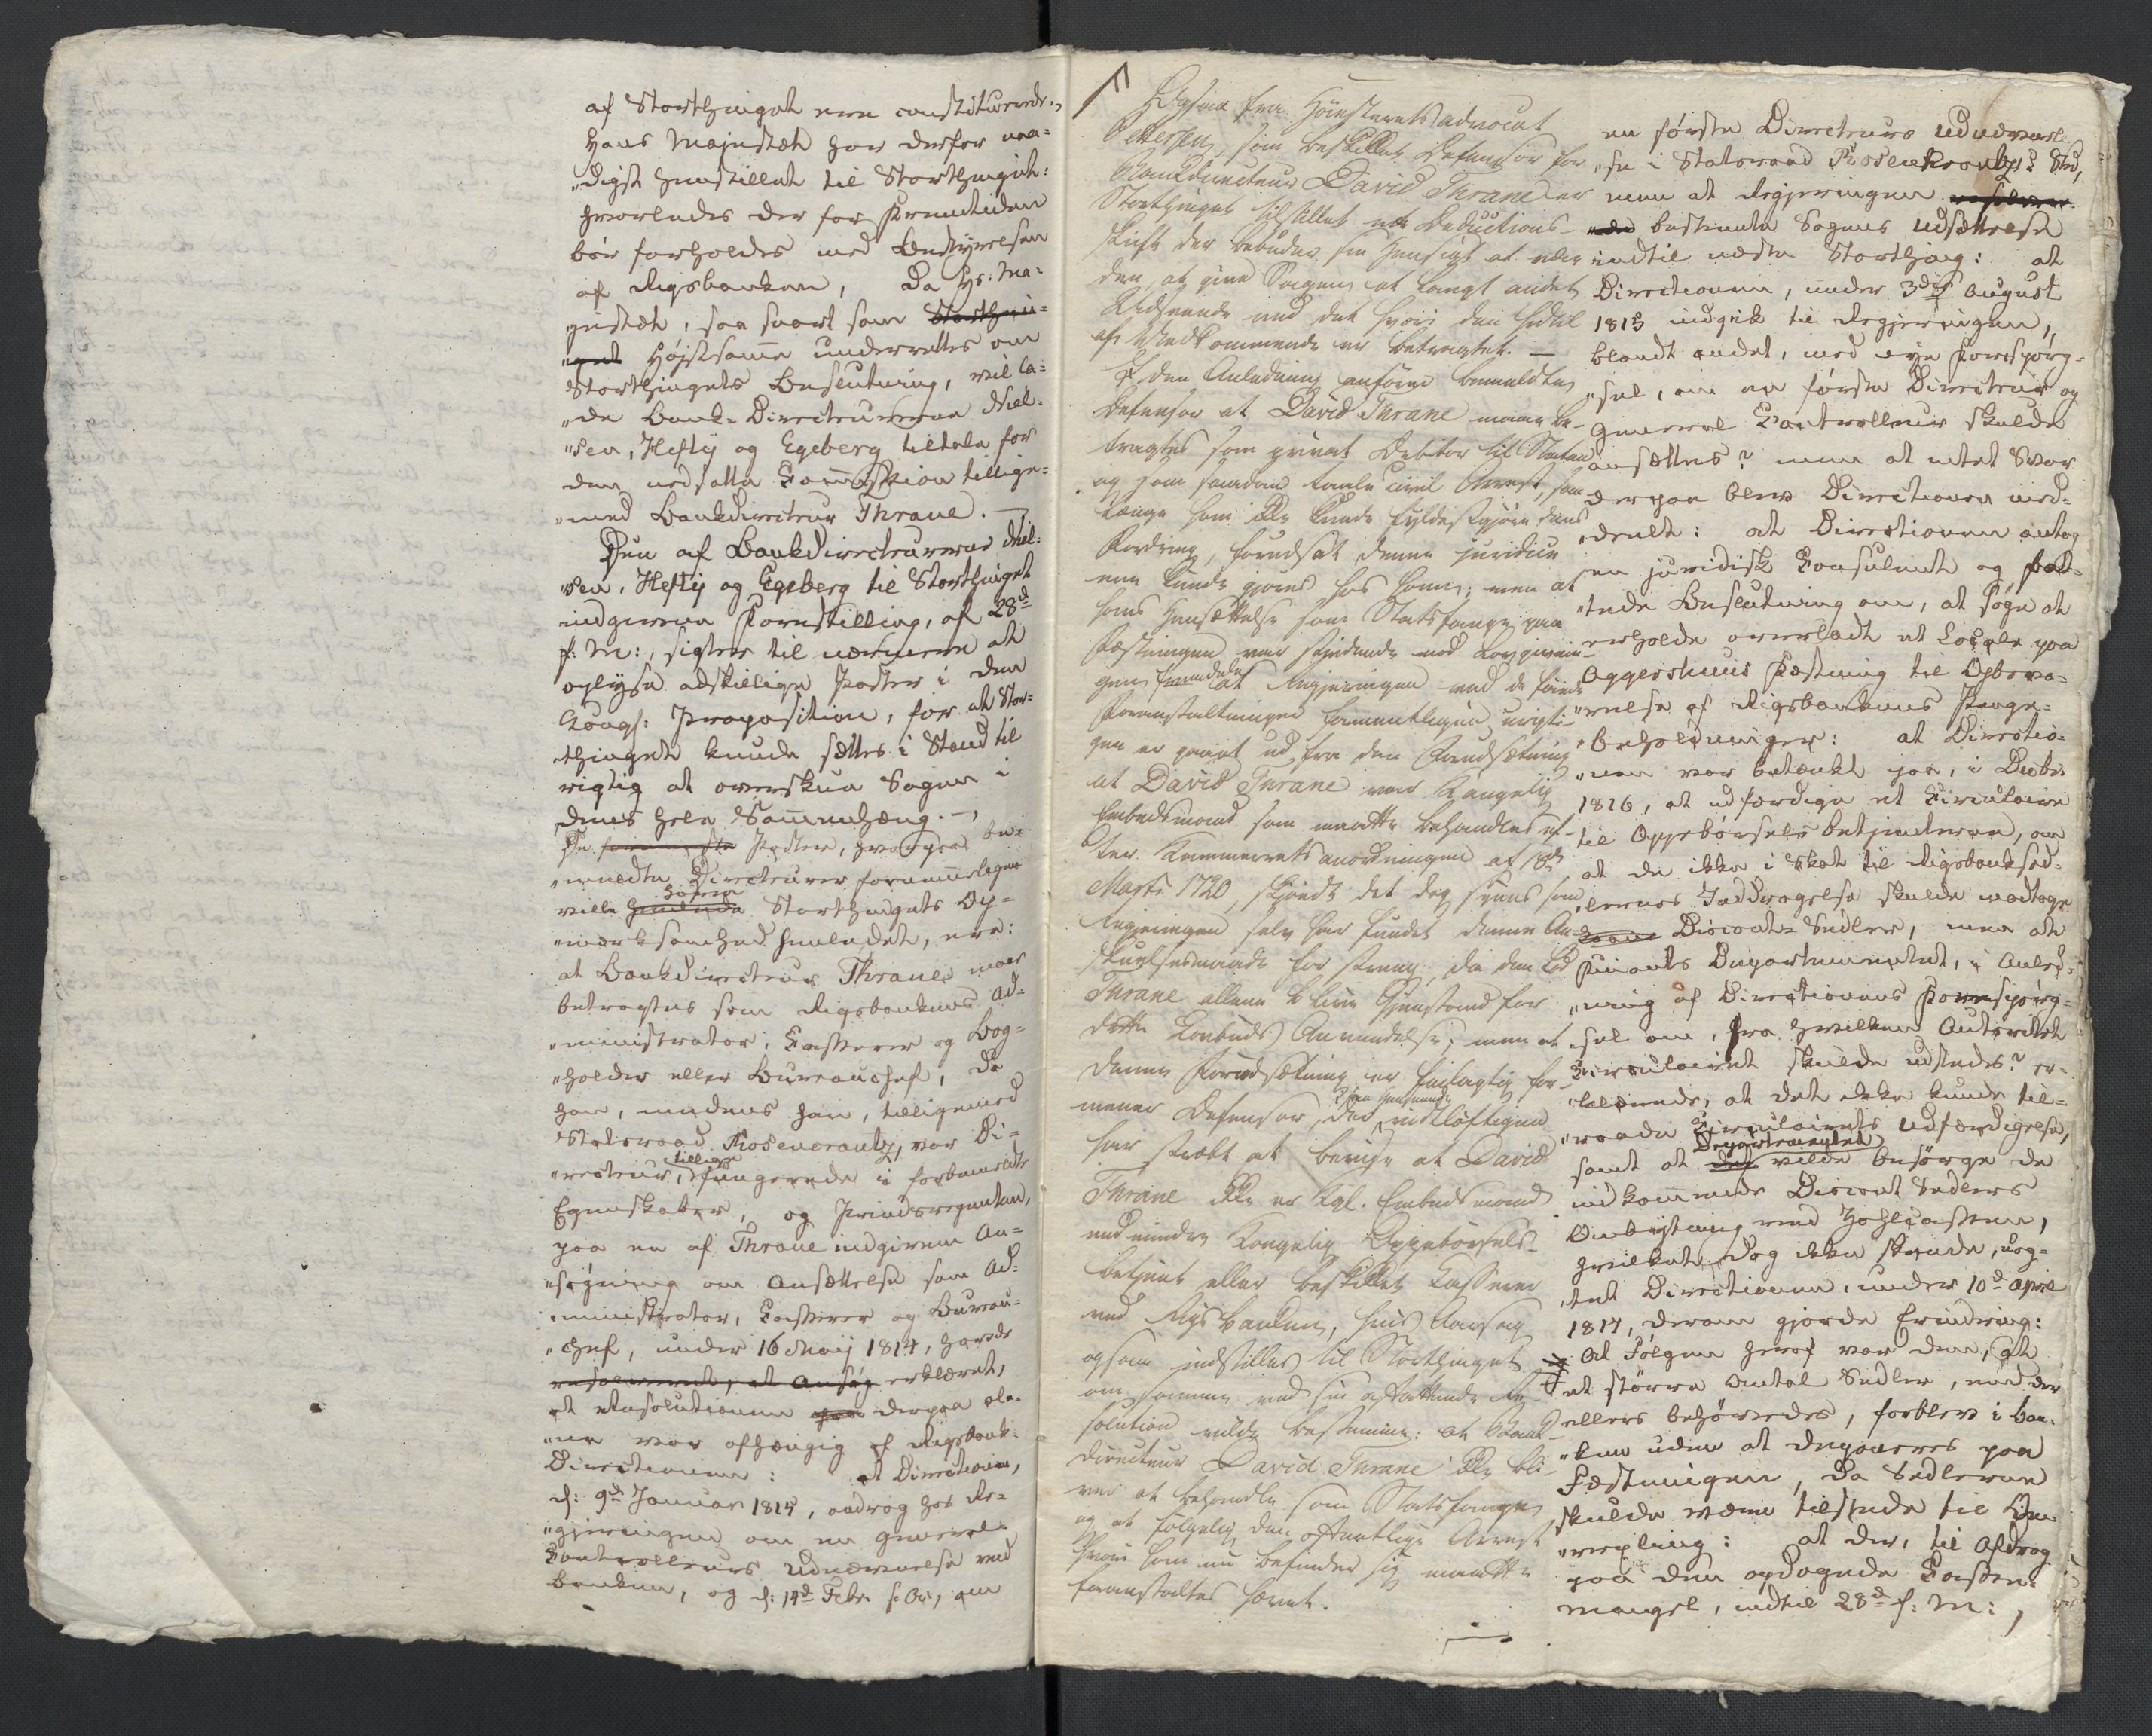 af Storthinget ere constituerede.,
Hans Majestæt har derfor naa-
"digst henstillet til Storthinget:
hvorledes der for Fremtiden
bör forholdes med Bestyrelsen
af Rigsbanken, Da Hs: Ma-
jestæt, saa snart som Storthin-
"get Højstsamme underrettes om
Storthingets Beslutning, vil la-
"de Bank-Directeurerne Niel-
"sen, Hefty og Egeberg tiltale for
den nedsatte Commission tillige-
"med Bankdirecteur Thrane. —
Den af Bankdirecteurerne Niel-
"sen, Hefty og Egeberg til Storthinget
indgivne Forestilling, af 28d
f: M:, sigter til nærmere at
oplyse adskillige Poster i den
Kongl: Proposition, for at Stor-
thinget kunde sættes i Stand til
rigtig at overskue Sagen i
dens hele Sammenhæng. —,
De fornemste Poster, hvorpaa be-
"meldte Directeurer fornemmeligen
ville henlede have Storthingets Op-
"mærksomhed henledet, ere:
at Bankdirecteur Thrane maae
betragtes som Rigsbankens Ad-
"ministrator, Casserer og Bog-
"holder eller Bureauchef, da
han, medens han, tilligemed
Statsraad Rosencrantz, var Di-
"recteur, tillige fungerede i forbemeldte
Egenskaber, og Prindsregenten,
paa en af Thrane indgiven An-
"søgning om Ansættelse som Ad-
"ministrator, Casserer og Bureau-
"chef, under 16 Maij 1814, havde
resolveret, at Ansøg erklæret,
at Resolutionen derpaa ale-
"ne var afhængig af Rigsbank-
Directionen: at Directionen,
d: 9de Januar 1815, androg hos Re-
"gjeringen om en General
Controlleurs Udnævnelse ved
Banken, og d: 14d Febr. s: A:, om

Ogsaa fra Höiesterets advocat
Petersen, som beskikket Defensor for
Bankdirecteur David Thrane er
Storthinget tilstillet et Deductions-
skrift der bebuder sin Hensigt at være
den, at give Sagen et langt andet
Udseende end det hvori den hidtil
af Vedkommende er betragtet. —
I den Anledning anförer bemeldte
Defensor at David Thrane maae be-
tragtes som privat Debitor til Staten
og som saadan taale Civil Arrest, saa
længe som ikke kunde fyldestgjöre dens
Fordring, forudsat denne juridice
kunde gjöres hos ham; men at
hans Hensættelse som Statsfange paa
Fæstningen var stridende mod Lovgivnin-
gen at Regjeringen ved de föiede
Foranstaltninger formentligen urigti-
gen er gaaet ud fra den Forudsætning
at David Thrane var Kongelig
Embedsmand som maatte behandles ef-
ter Kammerrets anordningen af 18de
Marts 1720, skjöndt det dog synes som
Regjeringen selv har fundet denne An-
skuelsesmaade for streng, da den lod
Thrane allene blive Gjenstand for
dette Lovbuds Anvendelse, men at
denne Forudsætning er feilagtig for-
mener Defensor, der vidtløftigen
har stræbt at bevise at David
Thrane ikke er Kgl. Embedsmand
endmindre Kongelig Oppebørsels-
betjent eller beskikket Casserer
ved Rigsbanken, hvis Ansøg
ogsaa indstilles til Storthinget
om samme ved sin Re-
solution vilde bestemme: at Bank-
directeur David Thrane ikke bli-
ver at behandle som Statsfange
og at følgelig den offentlige Arrest
hvori han nu befinder sig maatte
foranstaltes hævet.

en første Directeurs Udnævnel-
"se i Statsraad Rosenkrantz's Sted,
men at Regjeringen resolvere-
"de bestemte Sagens Udsættelse
indtil næste Storthing: at
Directionen, under 3die August
1815 indgik til Regjeringen,
blandt andet, med nye Forespørg-
"sel, om en første Directeur og
General Controlleur skulde
ansættes? men at intet Svar
derpaa blev Directionen med-
"deelt: at Directionen antog
en juridisk Consulent og fat-
"tede Beslutning om, at søge at
erholde overladt et Locale paa
Aggershuus Fæstning til Opbeva-
"relse af Rigsbankens Penge-
"beholdninger: at Directio-
"nen var betænkt paa, i Decbr.
1816, at udfærdige et Circulaire
til Oppebörsels betjenterne, om
at de ikke i Skat til Rigsbanksed-
"lernes Inddragelse skulde modtage
Disconto Sedler, men at
Finants Departementet, i Anled-
"ning af Directionens Forespörg-
"sel om, fra hvilken Autoritet
Circulairet skulde udstedes? er-
"klærede, at det ikke kunde til-
"raade Circulairets Udfærdigelse,
samt at det Departementet vilde besørge de
indkommende Discont Sedlers
Ombytning ved Zahlcassen,
hvilket dog ikke skeede, uag-
"tet Directionen, under 10d April
1817, derom gjorde Erindring:
at Følgen heraf var den, at
et större Antal Sedler, end der
ellers behövedes, forblev i Ban-
"ken uden at deponeres paa
Fæstningen, da Sedlerne
skulde være tilstede til Om-
"vexling: at der, til Afdrag
paa den opdagede Casse-
mangel, indtil 28d f: M:,